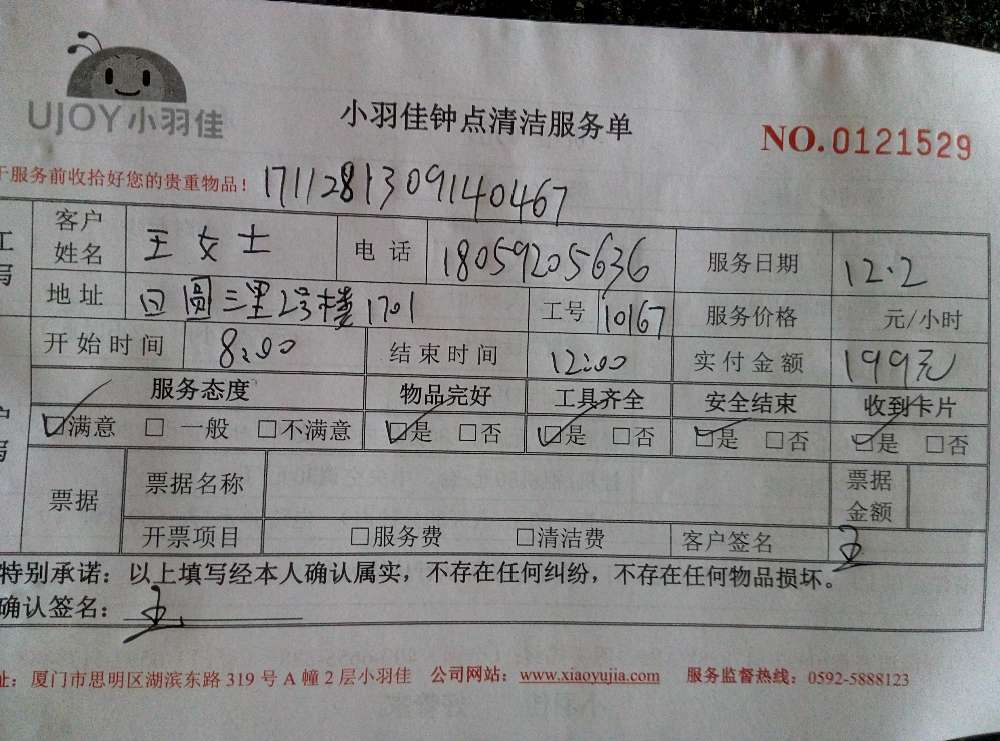 UJOY小羽佳
小羽佳钟点清洁服务单
NO.0121529
于服务前收拾好您的贵重物品！ 17112813091140467
客户姓名 王女士 电话 18059205636 服务日期 12.2
地址 回圆三里2号楼1701 工号 10167 服务价格 元/小时
开始时间 8:00 结束时间 12:00 实付金额 199元
服务态度 物品完好 工具齐全 安全结束 收到卡片
☑满意 □一般 □不满意 ☑是 □否 ☑是 □否 ☑是 □否 ☑是 □否
票据 票据名称 票据金额
开票项目 □服务费 □清洁费 客户签名 王
特别承诺：以上填写经本人确认属实，不存在任何纠纷，不存在任何物品损坏。
确认签名：王
址：厦门市思明区湖滨东路319号A幢2层小羽佳 公司网站：www.xiaoyujia.com 服务监督热线：0592-5888123